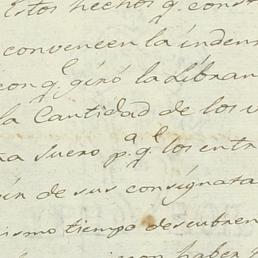 Estos hechos q.e const
convencen la indem
con q.e giró la Libran
la Cantidad de los
suero p.a q.e los entr
de sus consignata
ismo tiempo descubren
haber